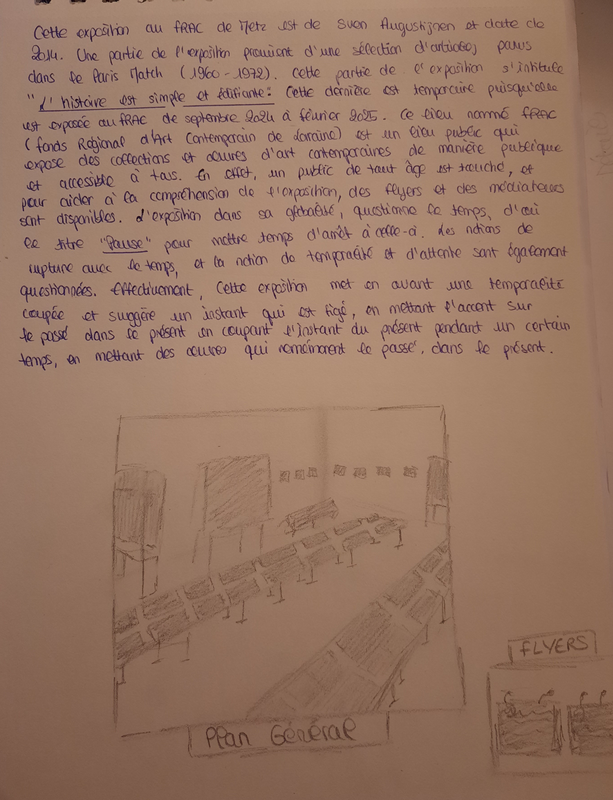 Cette exposition au FRAC de Metz est de Sven Augustijnen et date de
2014. Une partie de l'exposition provient d'une sélection d'articles, parus
dans le Paris Match (1960 - 1972). Cette partie de l'exposition s'intitule
"L'histoire est simple et édifiante: Cette dernière est temporaire puisqu'elle
est exposée au FRAC de septembre 2024 à février 2025. Ce lieu nommé FRAC
(fonds Régional d'Art Contemporain de Lorraine) est un lieu public qui
expose des collections et œuvres d'art contemporaines de manière publique
et accessible à tous. En effet, un public de tout âge est touché, et
pour aider à la compréhension de l'exposition, des flyers et des médiateurs
sont disponibles. L'exposition dans sa globalité, questionne le temps, d'où
le titre "Pause" pour mettre temps d'arrêt à celle-ci. Les notions de
rupture avec le temps, et la notion de temporalité et d'attente sont également
questionnées. Effectivement, Cette exposition met en avant une temporalité
coupée et suggère un instant qui est figé, en mettant l'accent sur
le passé dans le présent en coupant l'instant du présent pendant un certain
temps, en mettant des œuvres qui remémorent le passé, dans le présent.
FLYERS
Plan Général